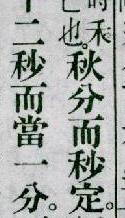 時禾
已也。
秋分而秒定。
十二秒而當一分。